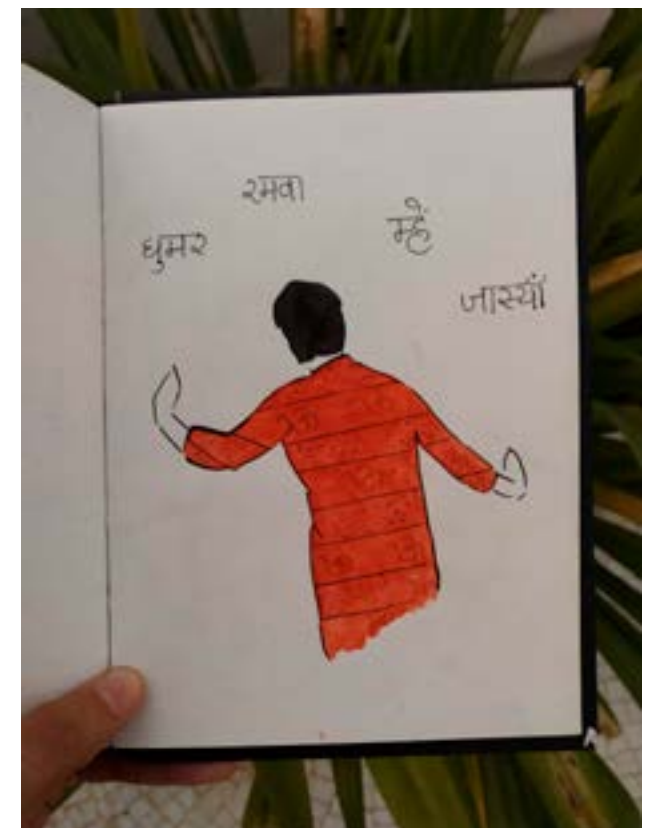 घुमर
रमवा
म्हें
जास्याँ